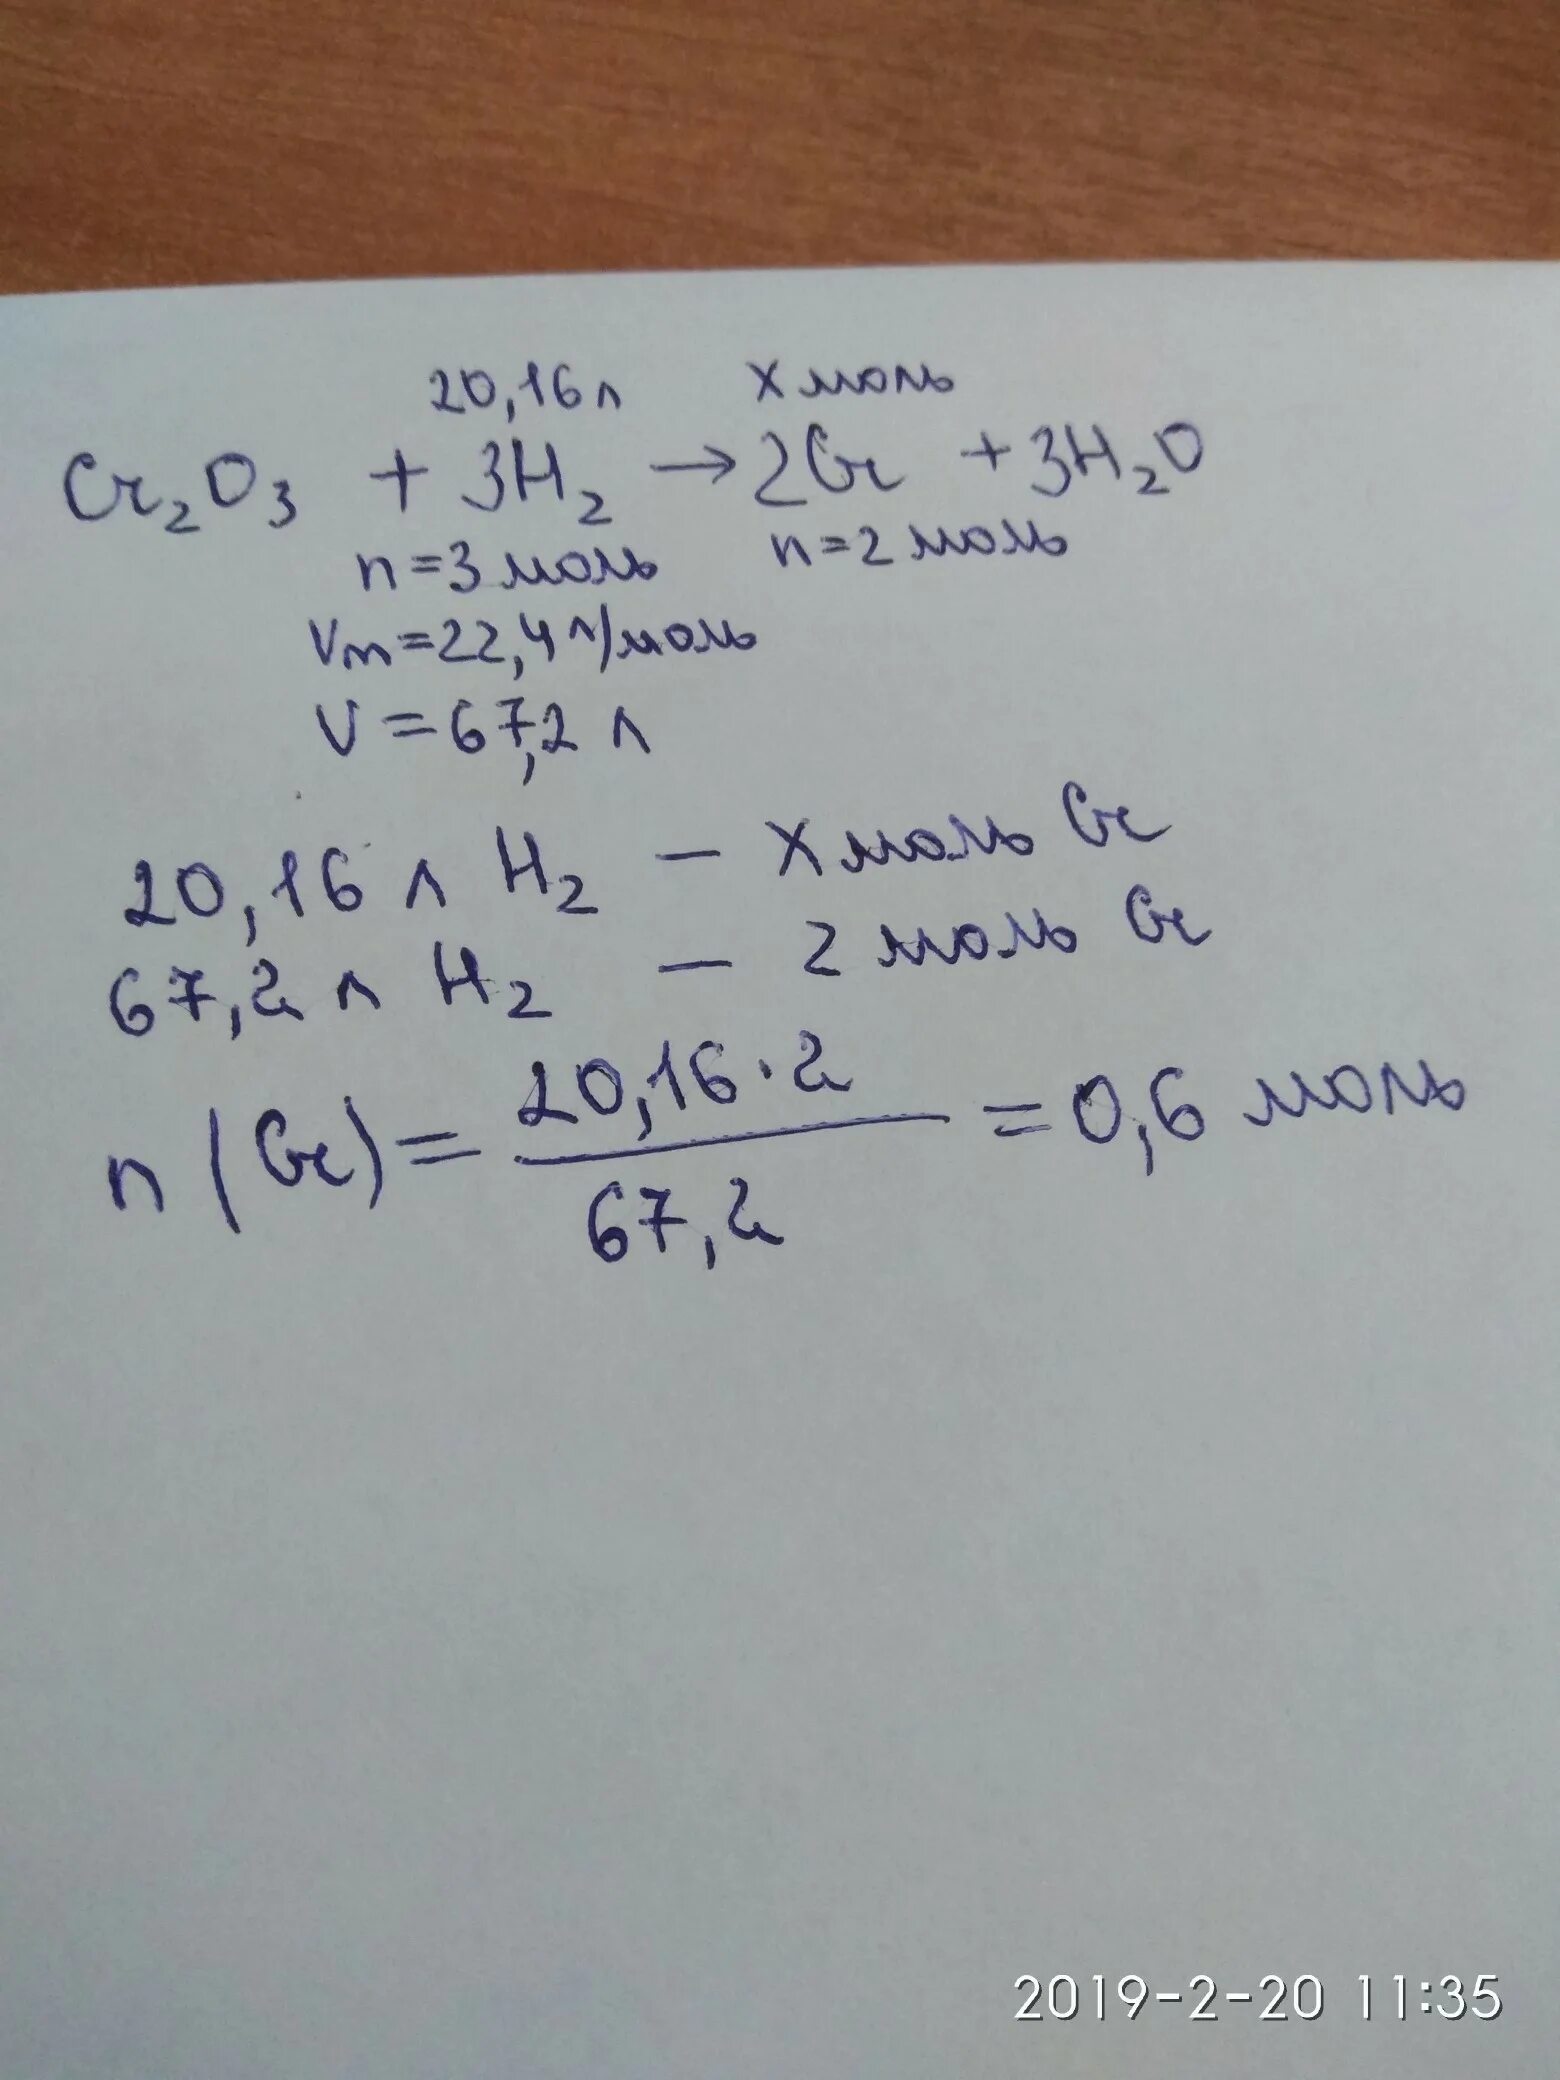 20,16л х моль
Cr₂O₃ + 3H₂ → 2Cr + 3H₂O
n=3 моль n=2 моль
Vm=22,4 л/моль
V=67,2 л
20,16 л H₂ – х моль Cr
67,2 л H₂ – 2 моль Cr
n(Cr) = 20,16·2 / 67,2 = 0,6 моль
2019-2-20 11:35